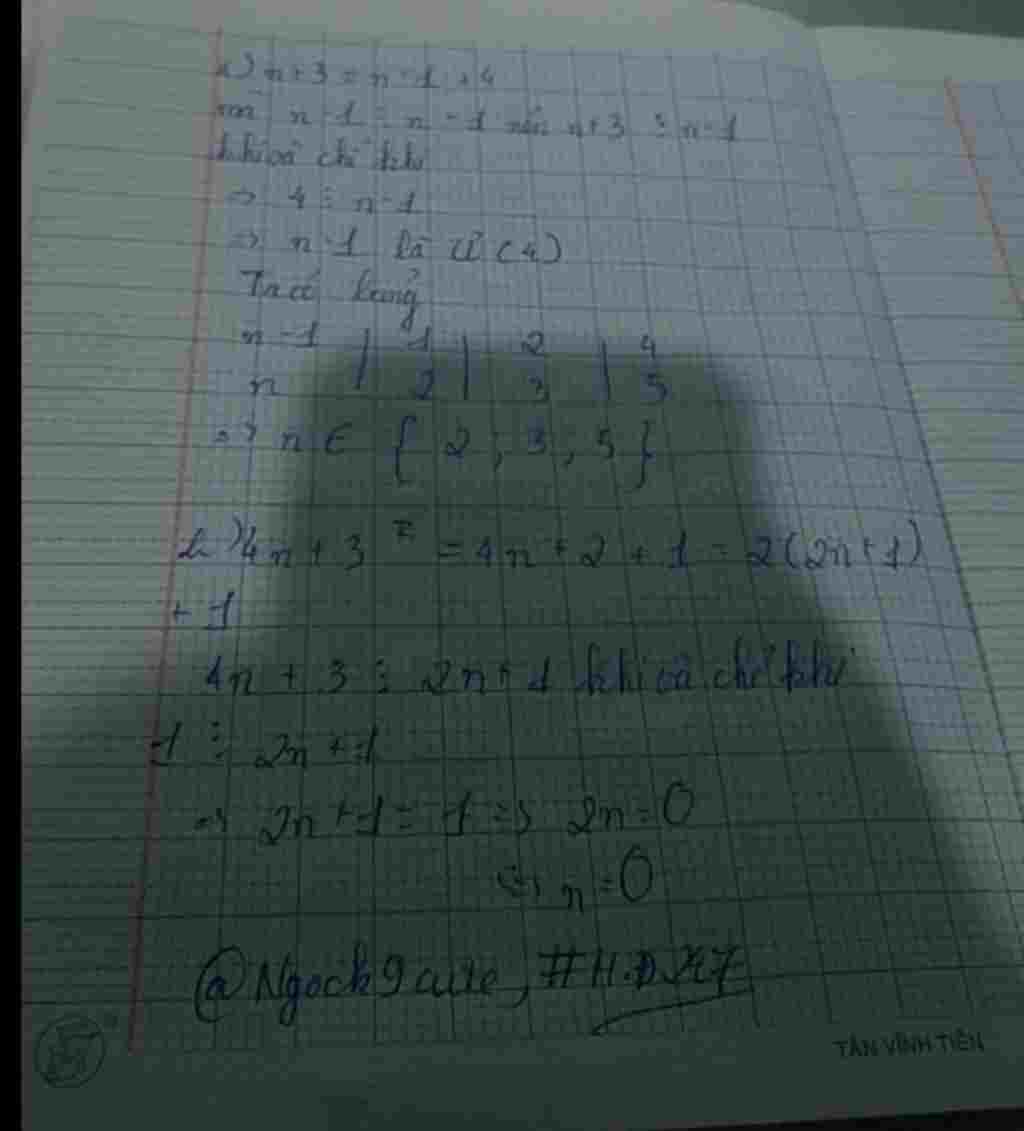 a) n + 3 = n - 1 + 4
mà n - 1 ⋮ n - 1 nên n + 3 ⋮ n - 1
khi và chỉ khi
=> 4 ⋮ n - 1
=> n - 1 là Ư (4)
Ta có bảng
n - 1 | 1 | 2 | 4
n | 2 | 3 | 5
=> n ∈ { 2 ; 3 , 5 }
b) 4n + 3 = 4n + 2 + 1 = 2(2n + 1)
+ 1
4n + 3 ⋮ 2n + 1 khi và chỉ khi
1 ⋮ 2n + 1
=> 2n + 1 = 1 => 2n = 0
<=> n = 0
@Ngock9cute, #H.Đ.X7
TÂN VĨNH TIẾN